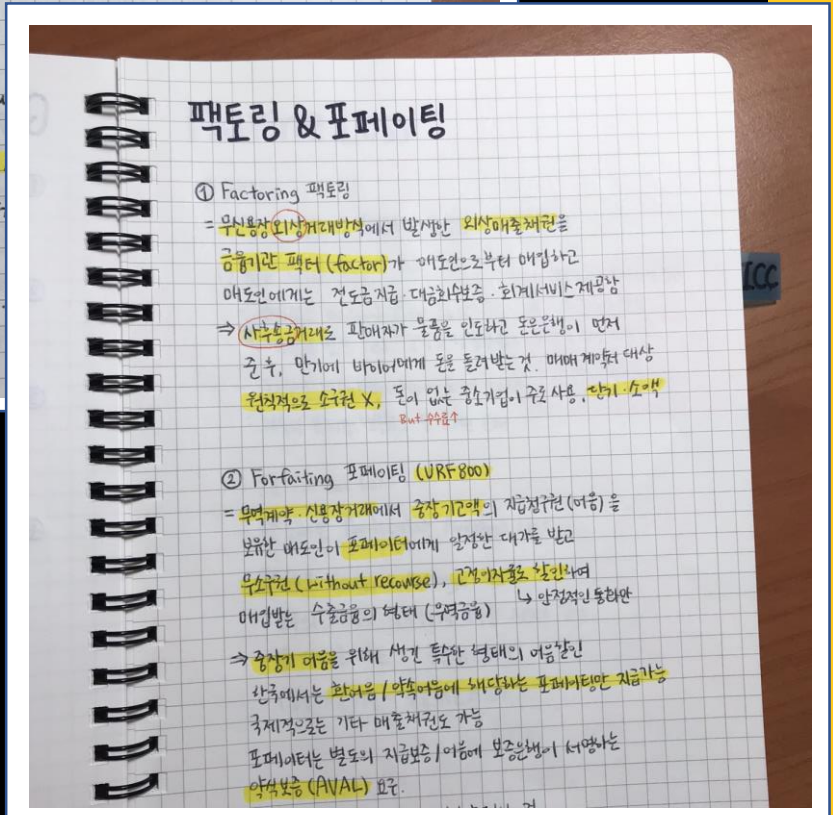 팩토링 & 포페이팅
① Factoring 팩토링
= 무신용장 외상거래방식에서 발생한 외상매출채권을
금융기관 팩터 (factor)가 매도인으로부터 매입하고
매도인에게는 전도금지급·대금회수보증·회계서비스 제공함
⇒ 사후송금거래로 판매자가 물품을 인도하고 돈은 은행이 먼저
준 후, 만기에 바이어에게 돈을 돌려받는 것. 매매계약터 대상
원칙적으로 소구권 X, 돈이 없는 중소기업이 주로 사용, 단기·소액
But 수수료↑
ICC
② Forfaiting 포페이팅 (URF800)
= 무역계약·신용장거래에서 중장기고액의 지급청구권 (어음)을
보유한 매도인이 포페이터에게 일정한 대가를 받고
무소구권 (without recourse), 고정이자율로 할인하여
↳ 안정적인 통화만
매입받는 수출금융의 형태 (무역금융)
⇒ 중장기 어음을 위해 생긴 특수한 형태의 어음할인
한국에서는 환어음/약속어음에 해당하는 포페이팅만 지급가능
국제적으로는 기타 매출채권도 가능
포페이터는 별도의 지급보증/어음에 보증은행이 서명하는
약식보증 (AVAL) 요구.